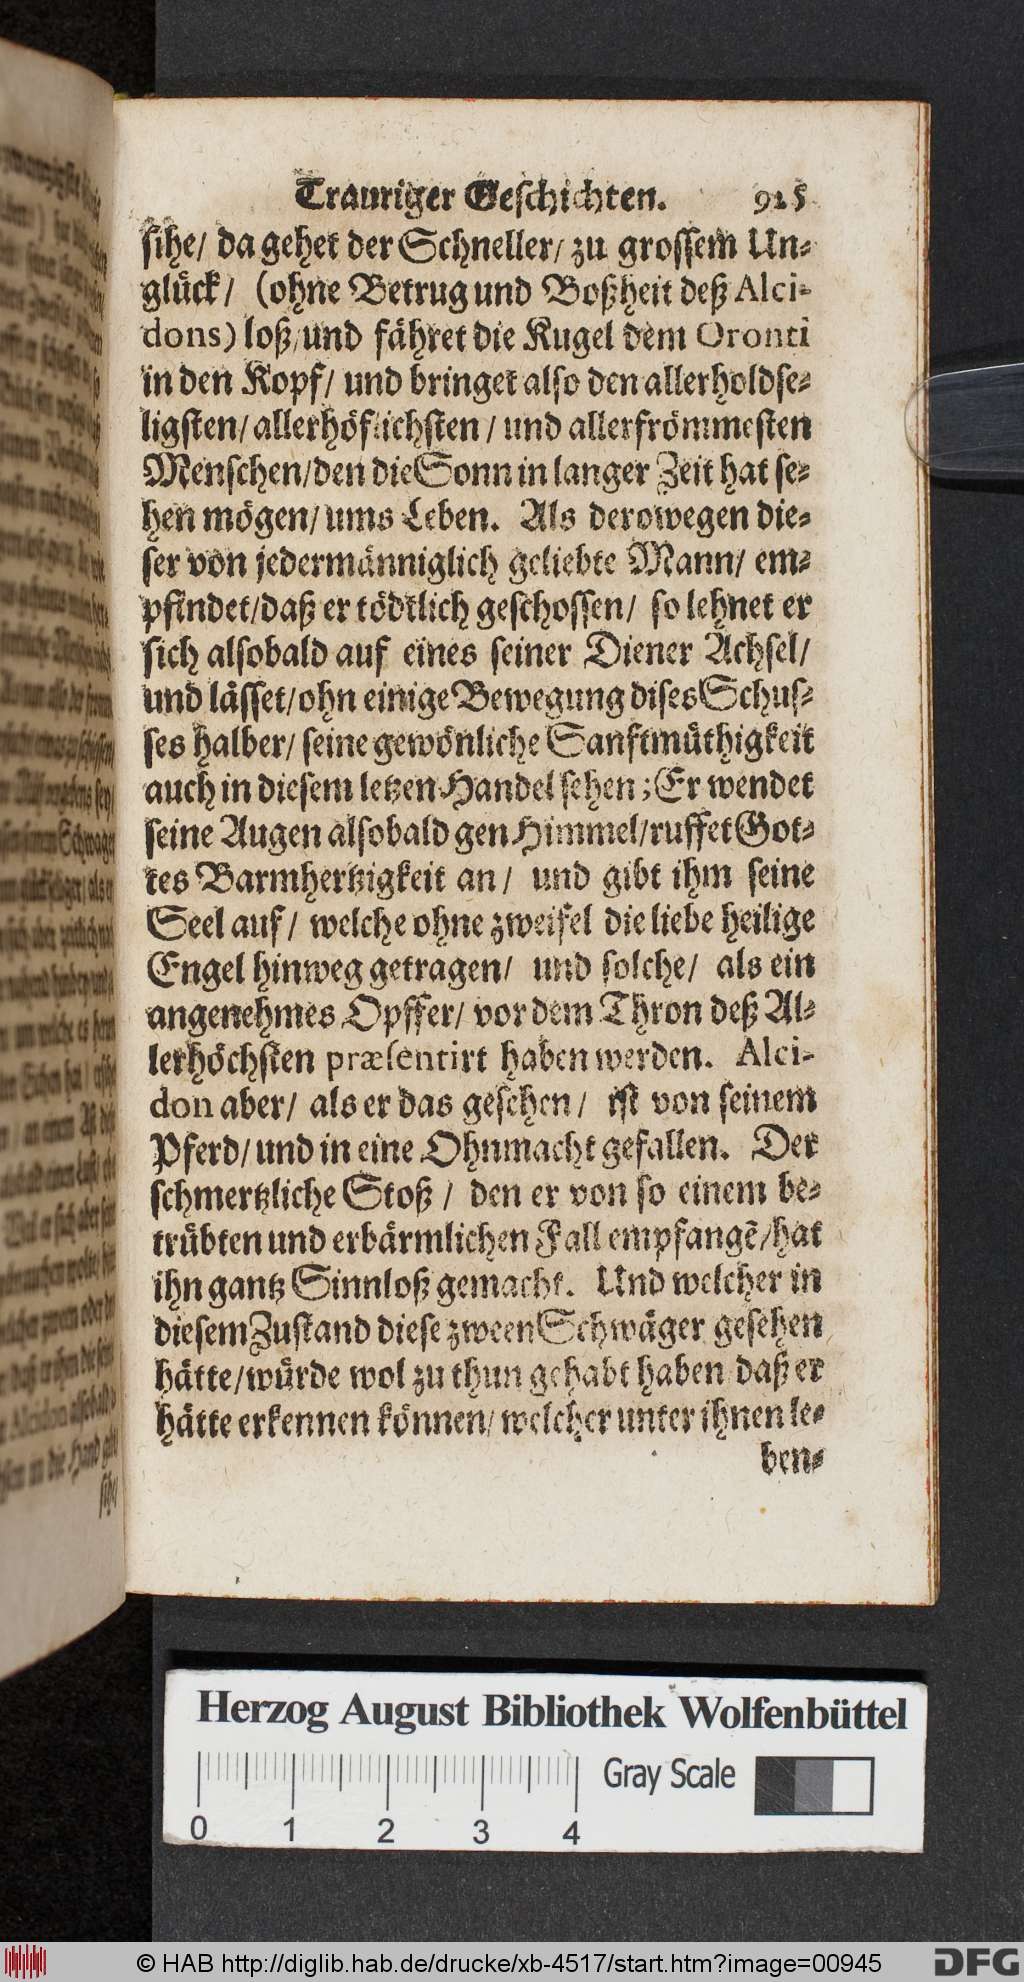 Trauriger Geschichten. 925
sihe/ da gehet der Schneller/ zu grossem Un-
glück/ (ohne Betrug und Boßheit deß Alci-
dons) loß/und fähret die Kugel dem Oronti
in den Kopf/ und bringet also den allerholdse-
ligsten/ allerhöflichsten/ und allerfrömmesten
Menschen/den die Sonn in langer Zeit hat se-
hen mögen/ ums Leben. Als derowegen die-
ser von jedermänniglich geliebte Mann/ em-
pfindet/daß er tödtlich geschossen/ so lehnet er
sich alsobald auf eines seiner Diener Achsel/
und lässet/ohn einige Bewegung dises Schus-
ses halber/ seine gewönliche Sanftmüthigkeit
auch in diesem letzen Handel sehen; Er wendet
seine Augen alsobald gen Himmel/ruffet Got-
tes Barmhertzigkeit an/ und gibt ihm seine
Seel auf/ welche ohne zweifel die liebe heilige
Engel hinweg getragen/ und solche/ als ein
angenehmes Opffer/ vor dem Thron deß Al-
lerhöchsten præsentirt haben werden. Alci-
don aber/ als er das gesehen/ ist von seinem
Pferd/ und in eine Ohnmacht gefallen. Der
schmertzliche Stoß/ den er von so einem be-
trübten und erbärmlichen Fall empfangẽ/hat
ihn gantz Sinnloß gemacht. Und welcher in
diesem Zustand diese zween Schwäger gesehen
hätte/würde wol zu thun gehabt haben daß er
hätte erkennen können/ welcher unter ihnen le-
ben-
Herzog August Bibliothek Wolfenbüttel
Gray Scale
0 1 2 3 4
© HAB http://diglib.hab.de/drucke/xb-4517/start.htm?image=00945
DFG